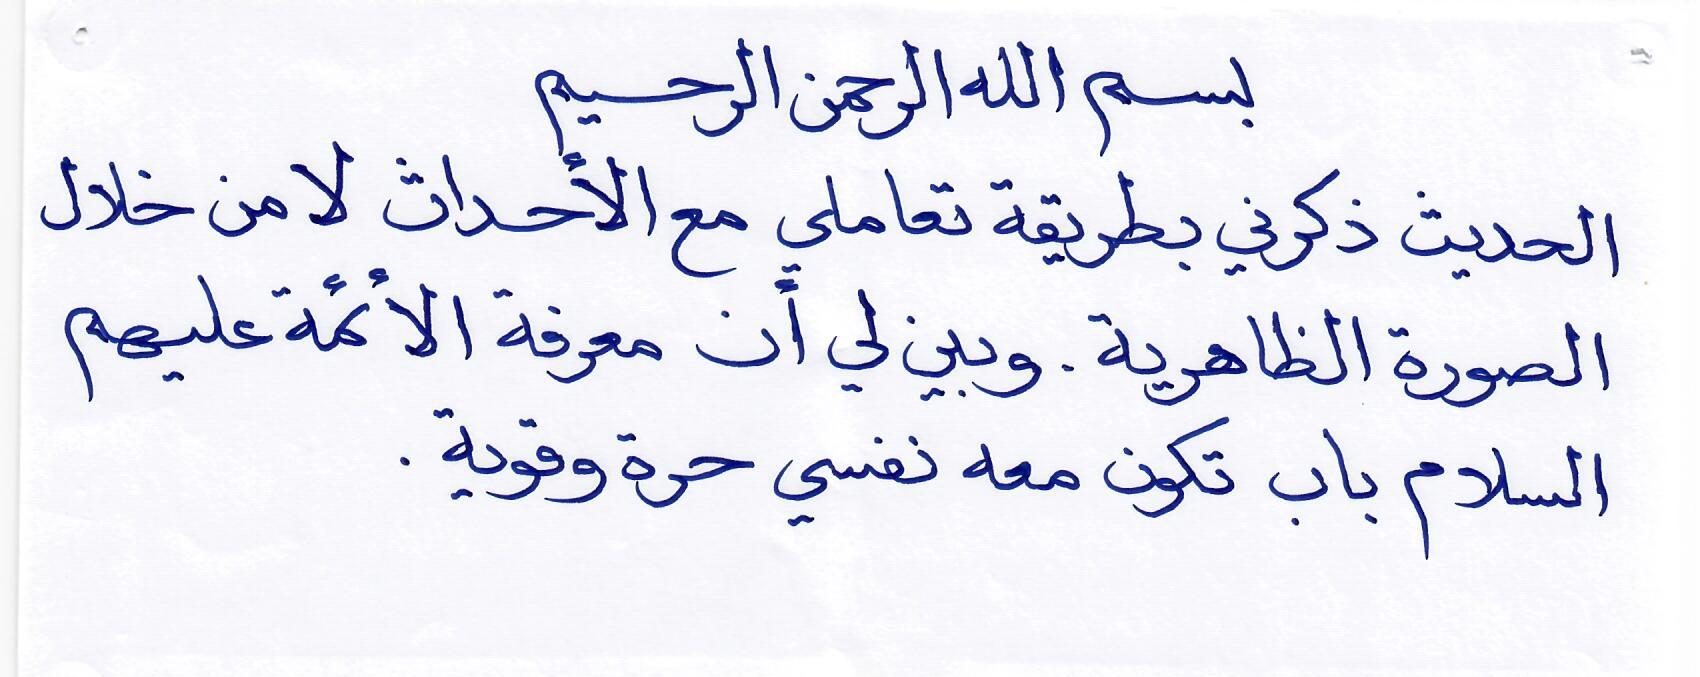 بسم الله الرحمن الرحيم
الحديث ذكرني بطريقة تعاملي مع الأحداث لا من خلال
الصورة الظاهرية . وبين لي أن معرفة الأئمة عليهم
السلام باب تكون معه نفسي حرة وقوية .